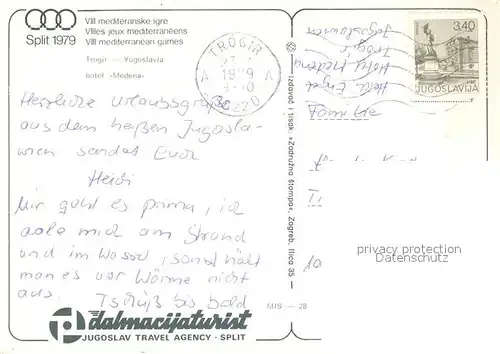 VIII mediteranske igre
VIIIes jeux mediterranéens
VIII mediterranean games
Split 1979
Trogir — Yugoslavia
hotel »Medena«
TROGIR
1979
Herzliche Urlaubsgrüße
aus dem heißen Jugosla-
wien sendet Euch
Heidi
Mir geht es prima, ich
aale mich am Strand
und im Wasser, sonst hält
man es vor Wärme nicht
aus. Tschüß bis bald
dalmacijaturist
JUGOSLAV TRAVEL AGENCY · SPLIT
MIS — 28
Izdavač i tisak: »Zadružna štampa«, Zagreb, Ilica 35
Heidi Engel
Hotel Medena
Trogir
Jugoslawien
3,40
JUGOSLAVIJA
Familie
privacy protection
Datenschutz